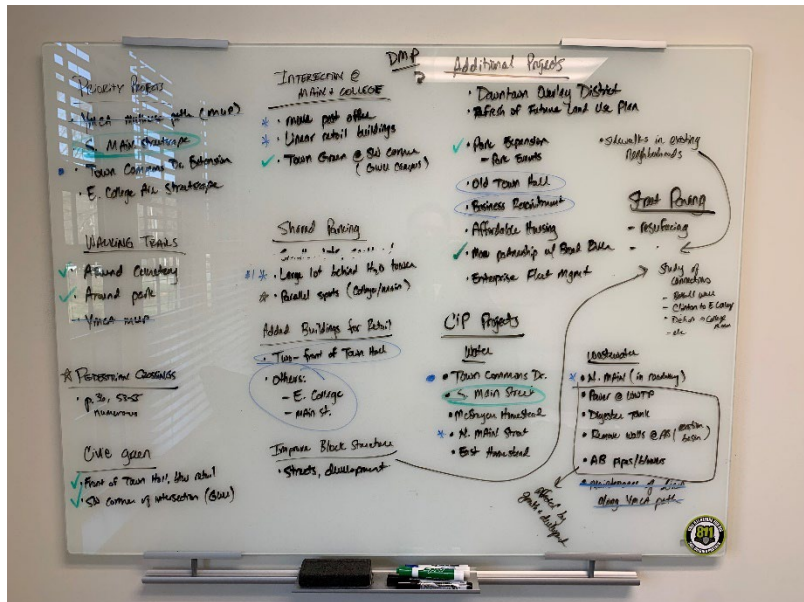 DMP
PRIORITY PROJECTS
• YMCA path (MUP)
S. MAIN Streetscape
• Town Commons Dr. Extension
• E. College Ave Streetscape
WALKING TRAILS
Around Cemetery
Around park
• YMCA MUP
PEDESTRIAN CROSSINGS
• p. 30, 53-55
numerous
Civic green
• Front of Town Hall, w/
• SW corner of intersection (GWU)
INTERSECTION @
MAIN + COLLEGE
• move post office
• Linear retail buildings
• Town Green @ SW corner
(GWU
Shared Parking
• Large lot behind H2O tower
• Parallel spots (College/main)
Added Buildings for Retail
• Two - front of Town Hall
• Others:
- E. College
- MAIN St.
Improve Block Structure
• Streets, development
Additional Projects
• Downtown Overlay District
• Refresh of Future Land Use Plan
• Park Expansion
- Park Events
• Old Town Hall
• Business Recruitment
• Affordable Housing
• More partnership w/ Broad River
• Enterprise Fleet Mgmt
CIP Projects
Water
• Town Commons Dr.
• S. Main Street
• Homestead
• N. MAIN Street
• East Homestead
• sidewalks in existing
neighborhoods
Street Paving
- resurfacing
-
Study of
connections
- Clinton to E College
- etc
Wastewater
• N. MAIN (in roadway)
• Power @ WWTP
• Digester Tank
• Remove Walls @ AB (aeration
basin)
• AB pipes/blowers
• maintenance of
along YMCA path
affected by
growth + development
811